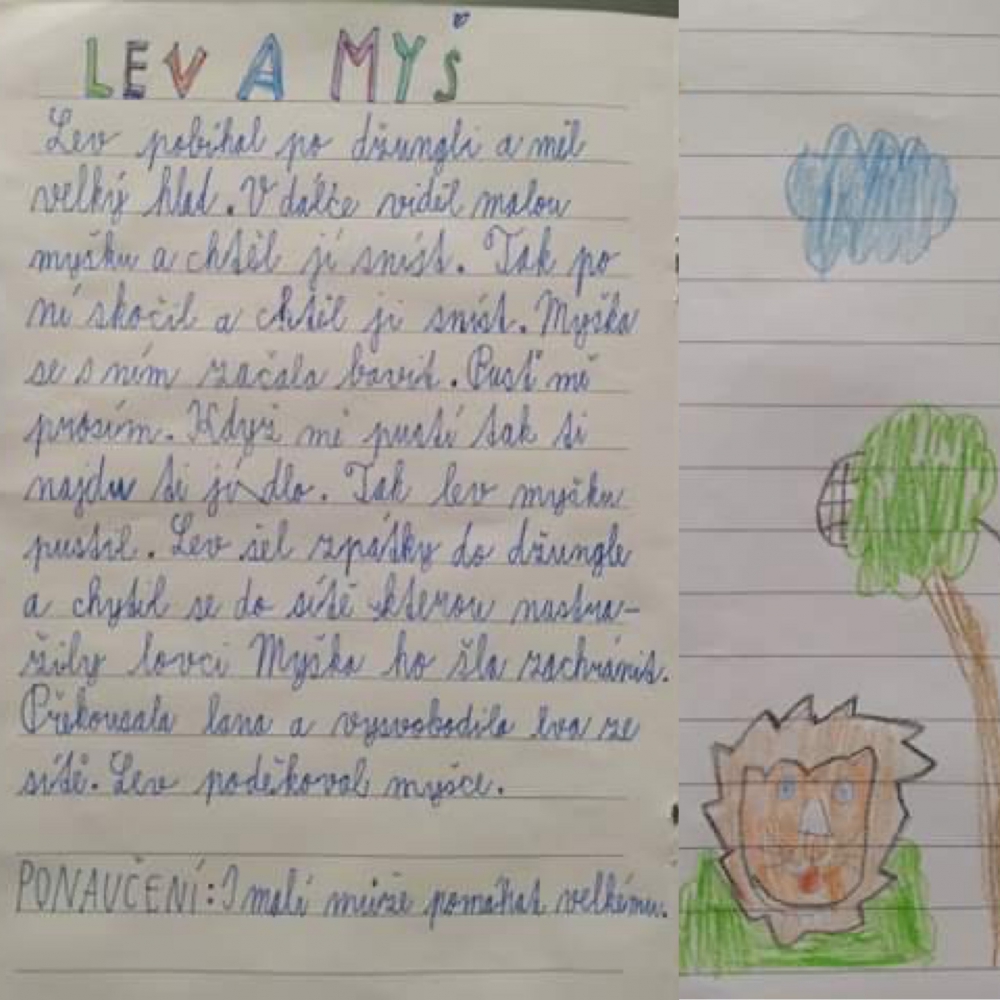 LEV A MYŠ
Lev pobíhal po džungli a měl
velký hlad. V dálce viděl malou
myšku a chtěl jí sníst. Tak po
ní skočil a chtěl ji sníst. Myška
se s ním začala bavit. Pusť mě
prosím. Když mě pustí tak ti
najdu ti jídlo. Tak lev myšku
pustil. Lev šel zpátky do džungle
a chytil se do sítě kterou nastra-
žily lovci Myška ho šla zachránit.
Překousala lana a vysvobodila lva ze
sítě. Lev poděkoval myšce.
PONAUČENÍ: I malí může pomáhat velkému.